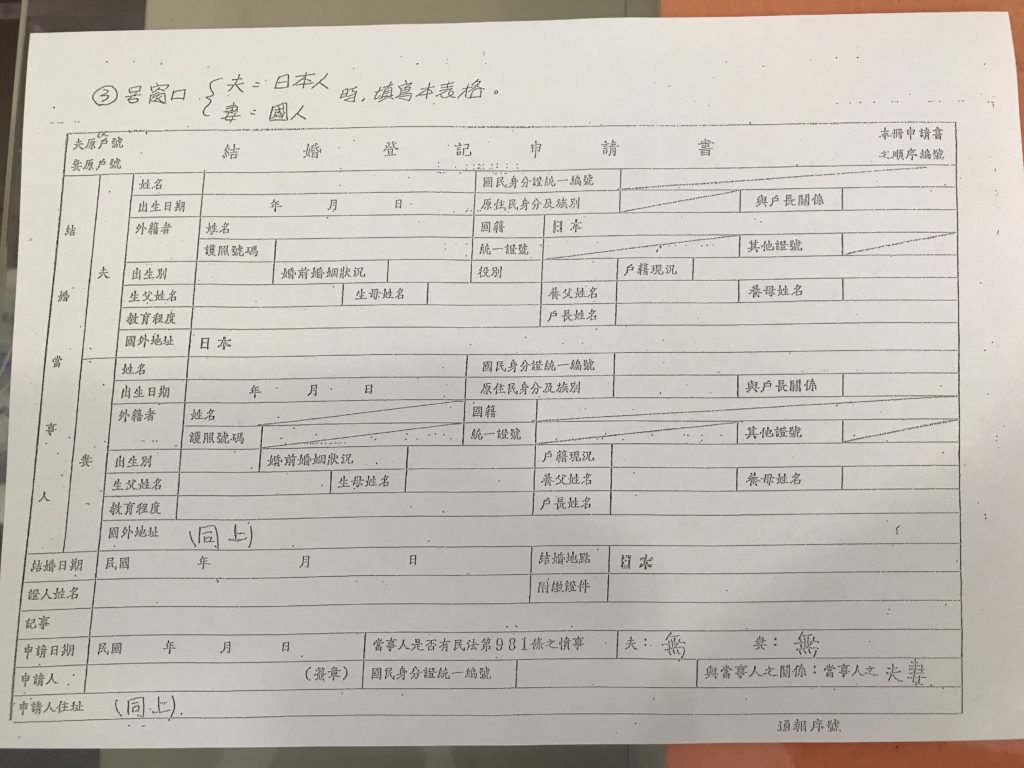 ③号窗口 夫=日本人 時，填寫本表格。
妻=國人
夫原戶號 結婚登記申請書 本冊申請書
妻原戶號 之順序編號
結婚當事人
夫
姓名 國民身分證統一編號
出生日期 年 月 日 原住民身分及族別 與戶長關係
外籍者 姓名 國籍 日本
護照號碼 統一證號 其他證號
出生別 婚前婚姻狀況 役別 戶籍現況
生父姓名 生母姓名 養父姓名 養母姓名
教育程度 戶長姓名
國外地址 日本
妻
姓名 國民身分證統一編號
出生日期 年 月 日 原住民身分及族別 與戶長關係
外籍者 姓名 國籍
護照號碼 統一證號 其他證號
出生別 婚前婚姻狀況 戶籍現況
生父姓名 生母姓名 養父姓名 養母姓名
教育程度 戶長姓名
國外地址 (同上)
結婚日期 民國 年 月 日 結婚地點 日本
證人姓名 附繳證件
記事
申請日期 民國 年 月 日 當事人是否有民法第981條之情事 夫：無 妻：無
申請人 (簽章) 國民身分證統一編號 與當事人之關係：當事人之 夫妻
申請人住址 (同上).
通報序號